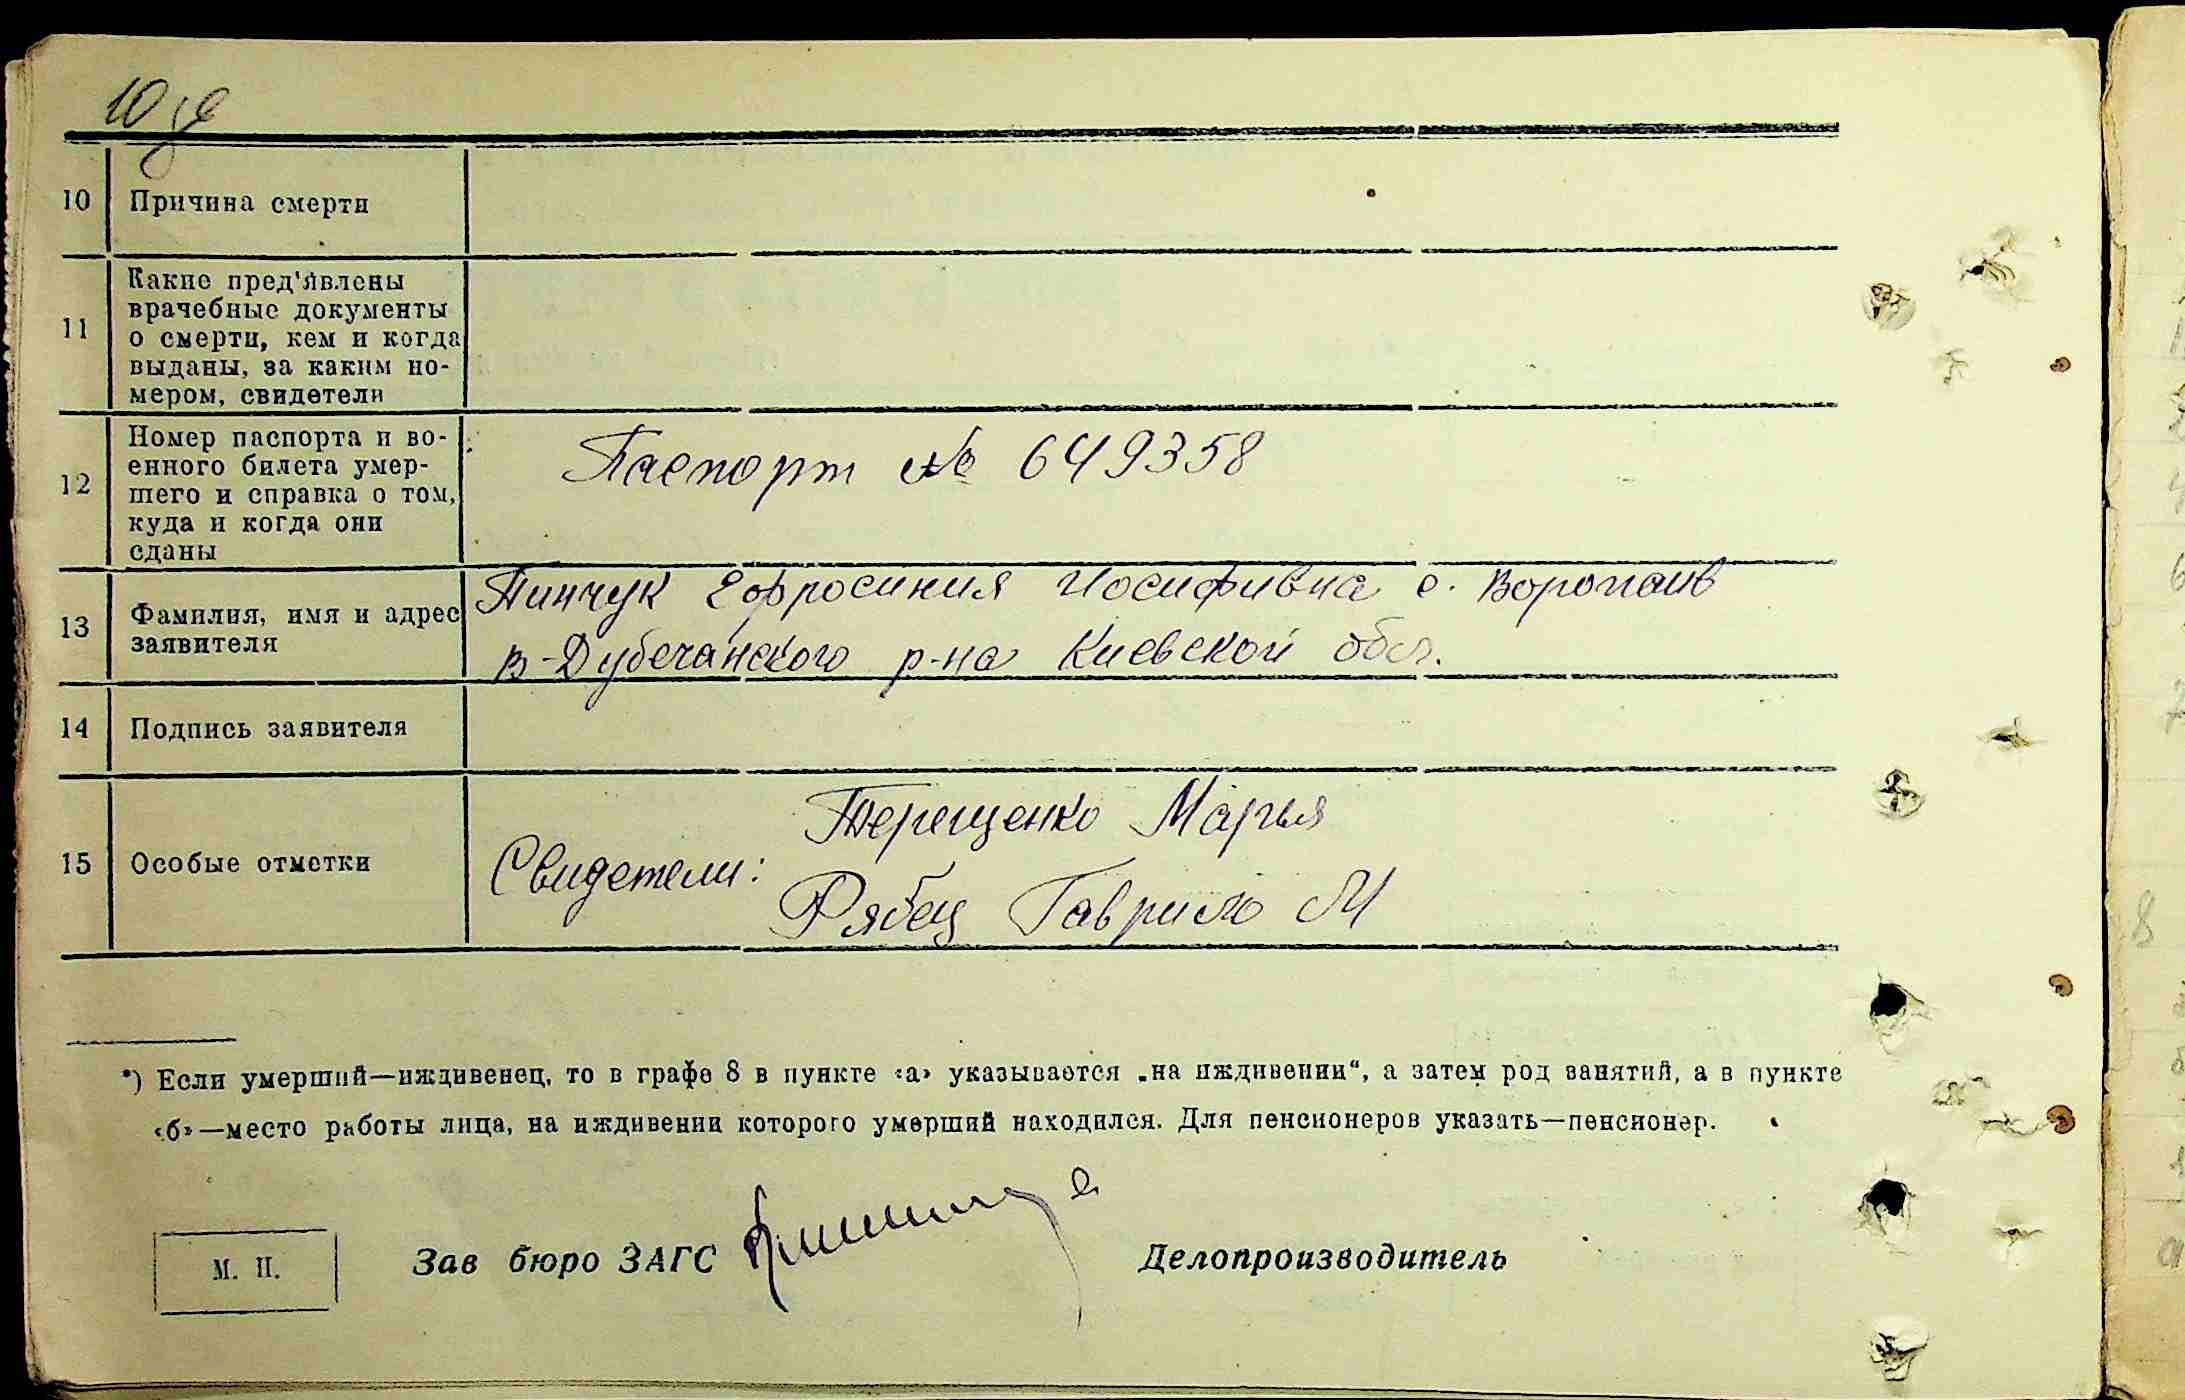 10
10 Причина смерти
11 Какие пред'явлены
врачебные документы
о смерти, кем и когда
выданы, за каким но-
мером, свидетели
12 Номер паспорта и во-
енного билета умер-
шего и справка о том,
куда и когда они
сданы
Паспорт № 649358
13 Фамилия, имя и адрес
заявителя
Пинчук Ефросиния Иосифивна с. Воропаив
В-Дубечанского р-на Киевской обл.
14 Подпись заявителя
15 Особые отметки
Свидетели:
Терещенко Марья
Рябец Гаврило М
*) Если умерший—иждивенец, то в графе 8 в пункте «а» указывается „на иждивении“, а затем род занятий, а в пункте
«б»—место работы лица, на иждивении которого умерший находился. Для пенсионеров указать—пенсионер.
М. П.
Зав бюро ЗАГС
Делопроизводитель